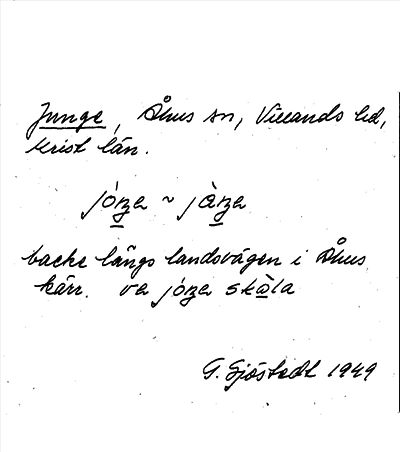 Junge, Åhus sn, Villands hd,
Krist län.
jóŋa ~ jàŋa
backe längs landsvägen i Åhus
kärr. va jóŋa skàla
G. Sjöstedt 1949